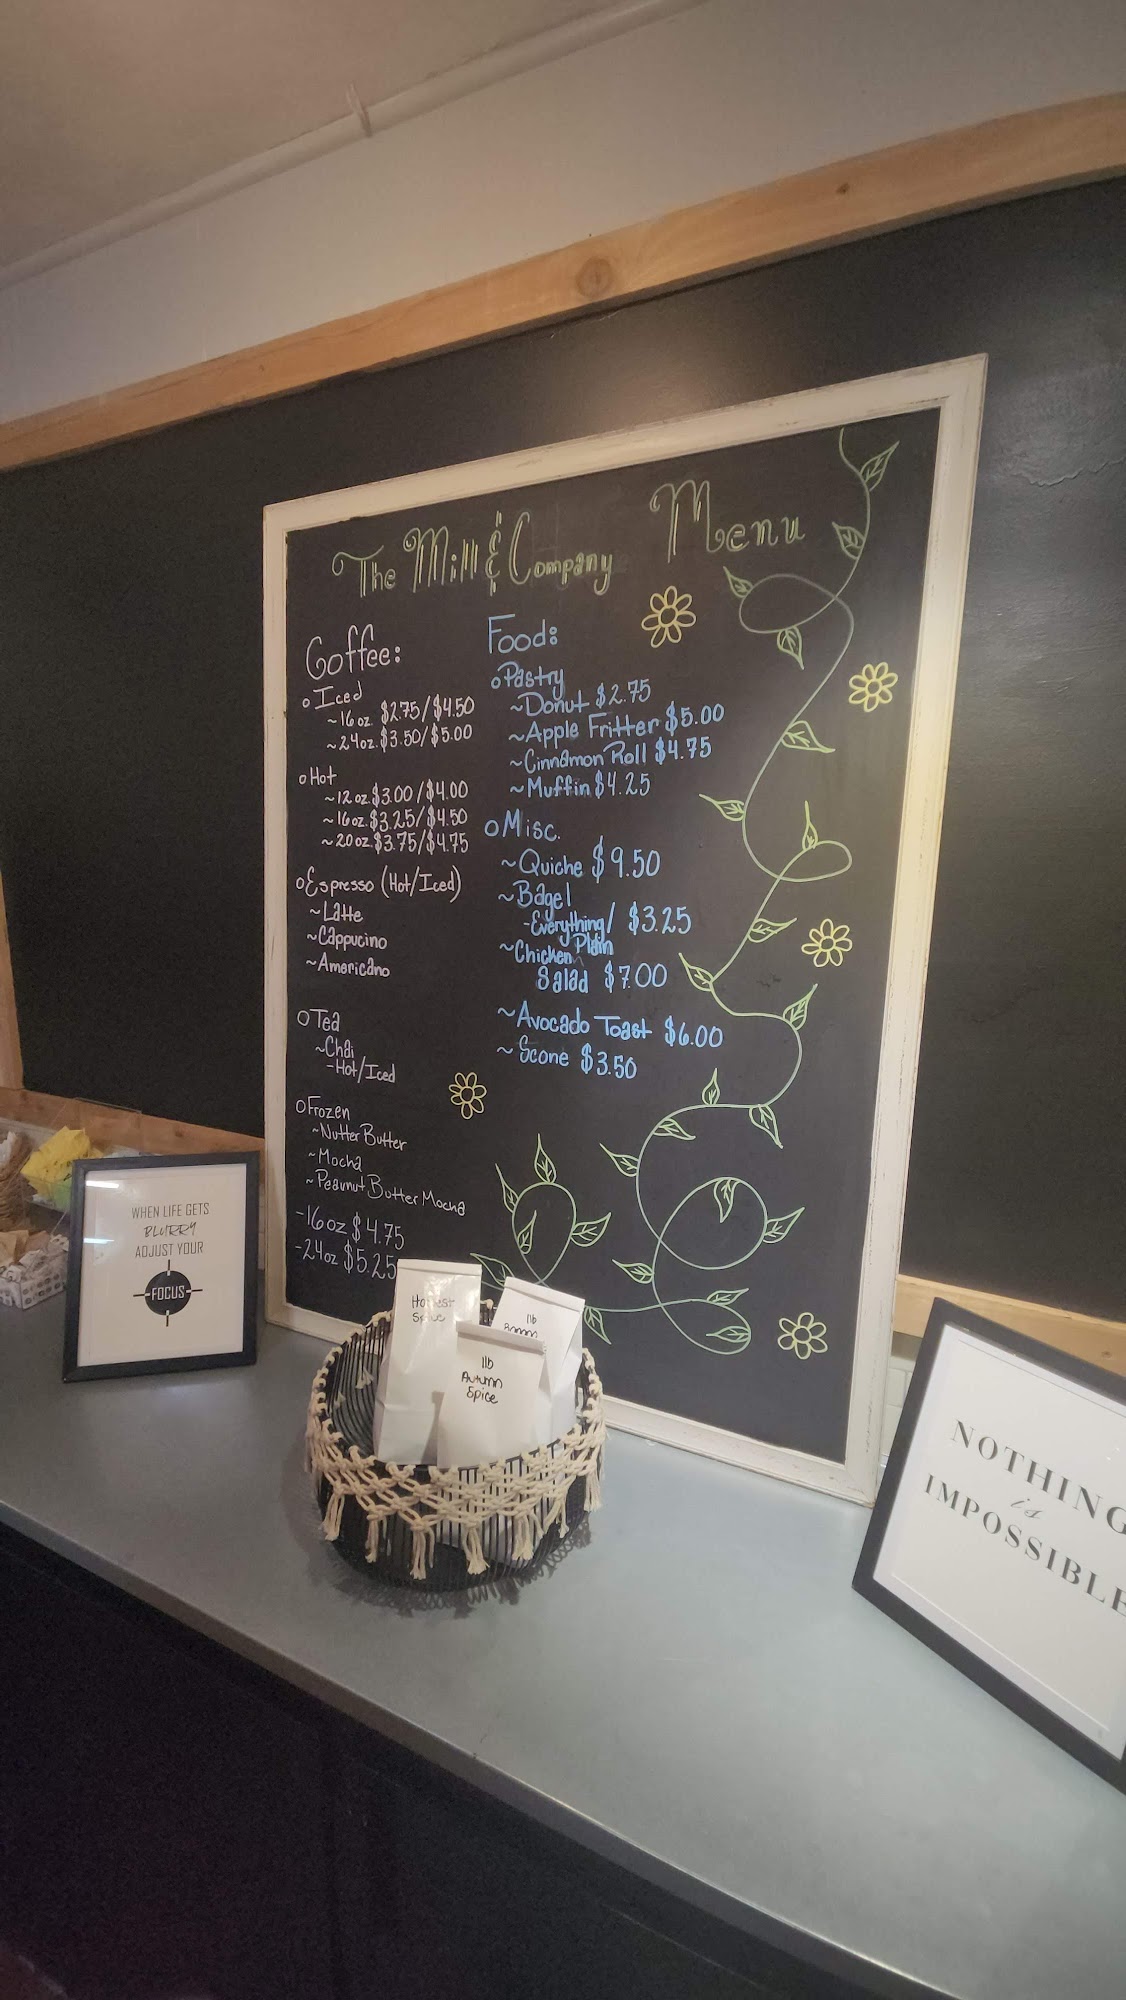 The Mill & Company Menu
Coffee:
o Iced
~16oz. $2.75/$4.50
~24oz. $3.50/$5.00
o Hot
~12oz. $3.00/$4.00
~16oz. $3.25/$4.50
~20oz. $3.75/$4.75
o Espresso (Hot/Iced)
~Latte
~Cappucino
~Americano
o Tea
~Chai
-Hot/Iced
o Frozen
~Nutter Butter
~Mocha
~Peavnut Butter Mocha
-16oz $4.75
-24oz $5.25
Food:
o Pastry
~Donut $2.75
~Apple Fritter $5.00
~Cinnamon Roll $4.75
~Muffin $4.25
o Misc.
~Quiche $9.50
~Bagel
-Everything/ $3.25
Plain
~Chicken
Salad $7.00
~Avocado Toast $6.00
~Scone $3.50
WHEN LIFE GETS
BLURRY
ADJUST YOUR
FOCUS
1lb
Autumn
Spice
1lb
NOTHING
is
IMPOSSIBLE